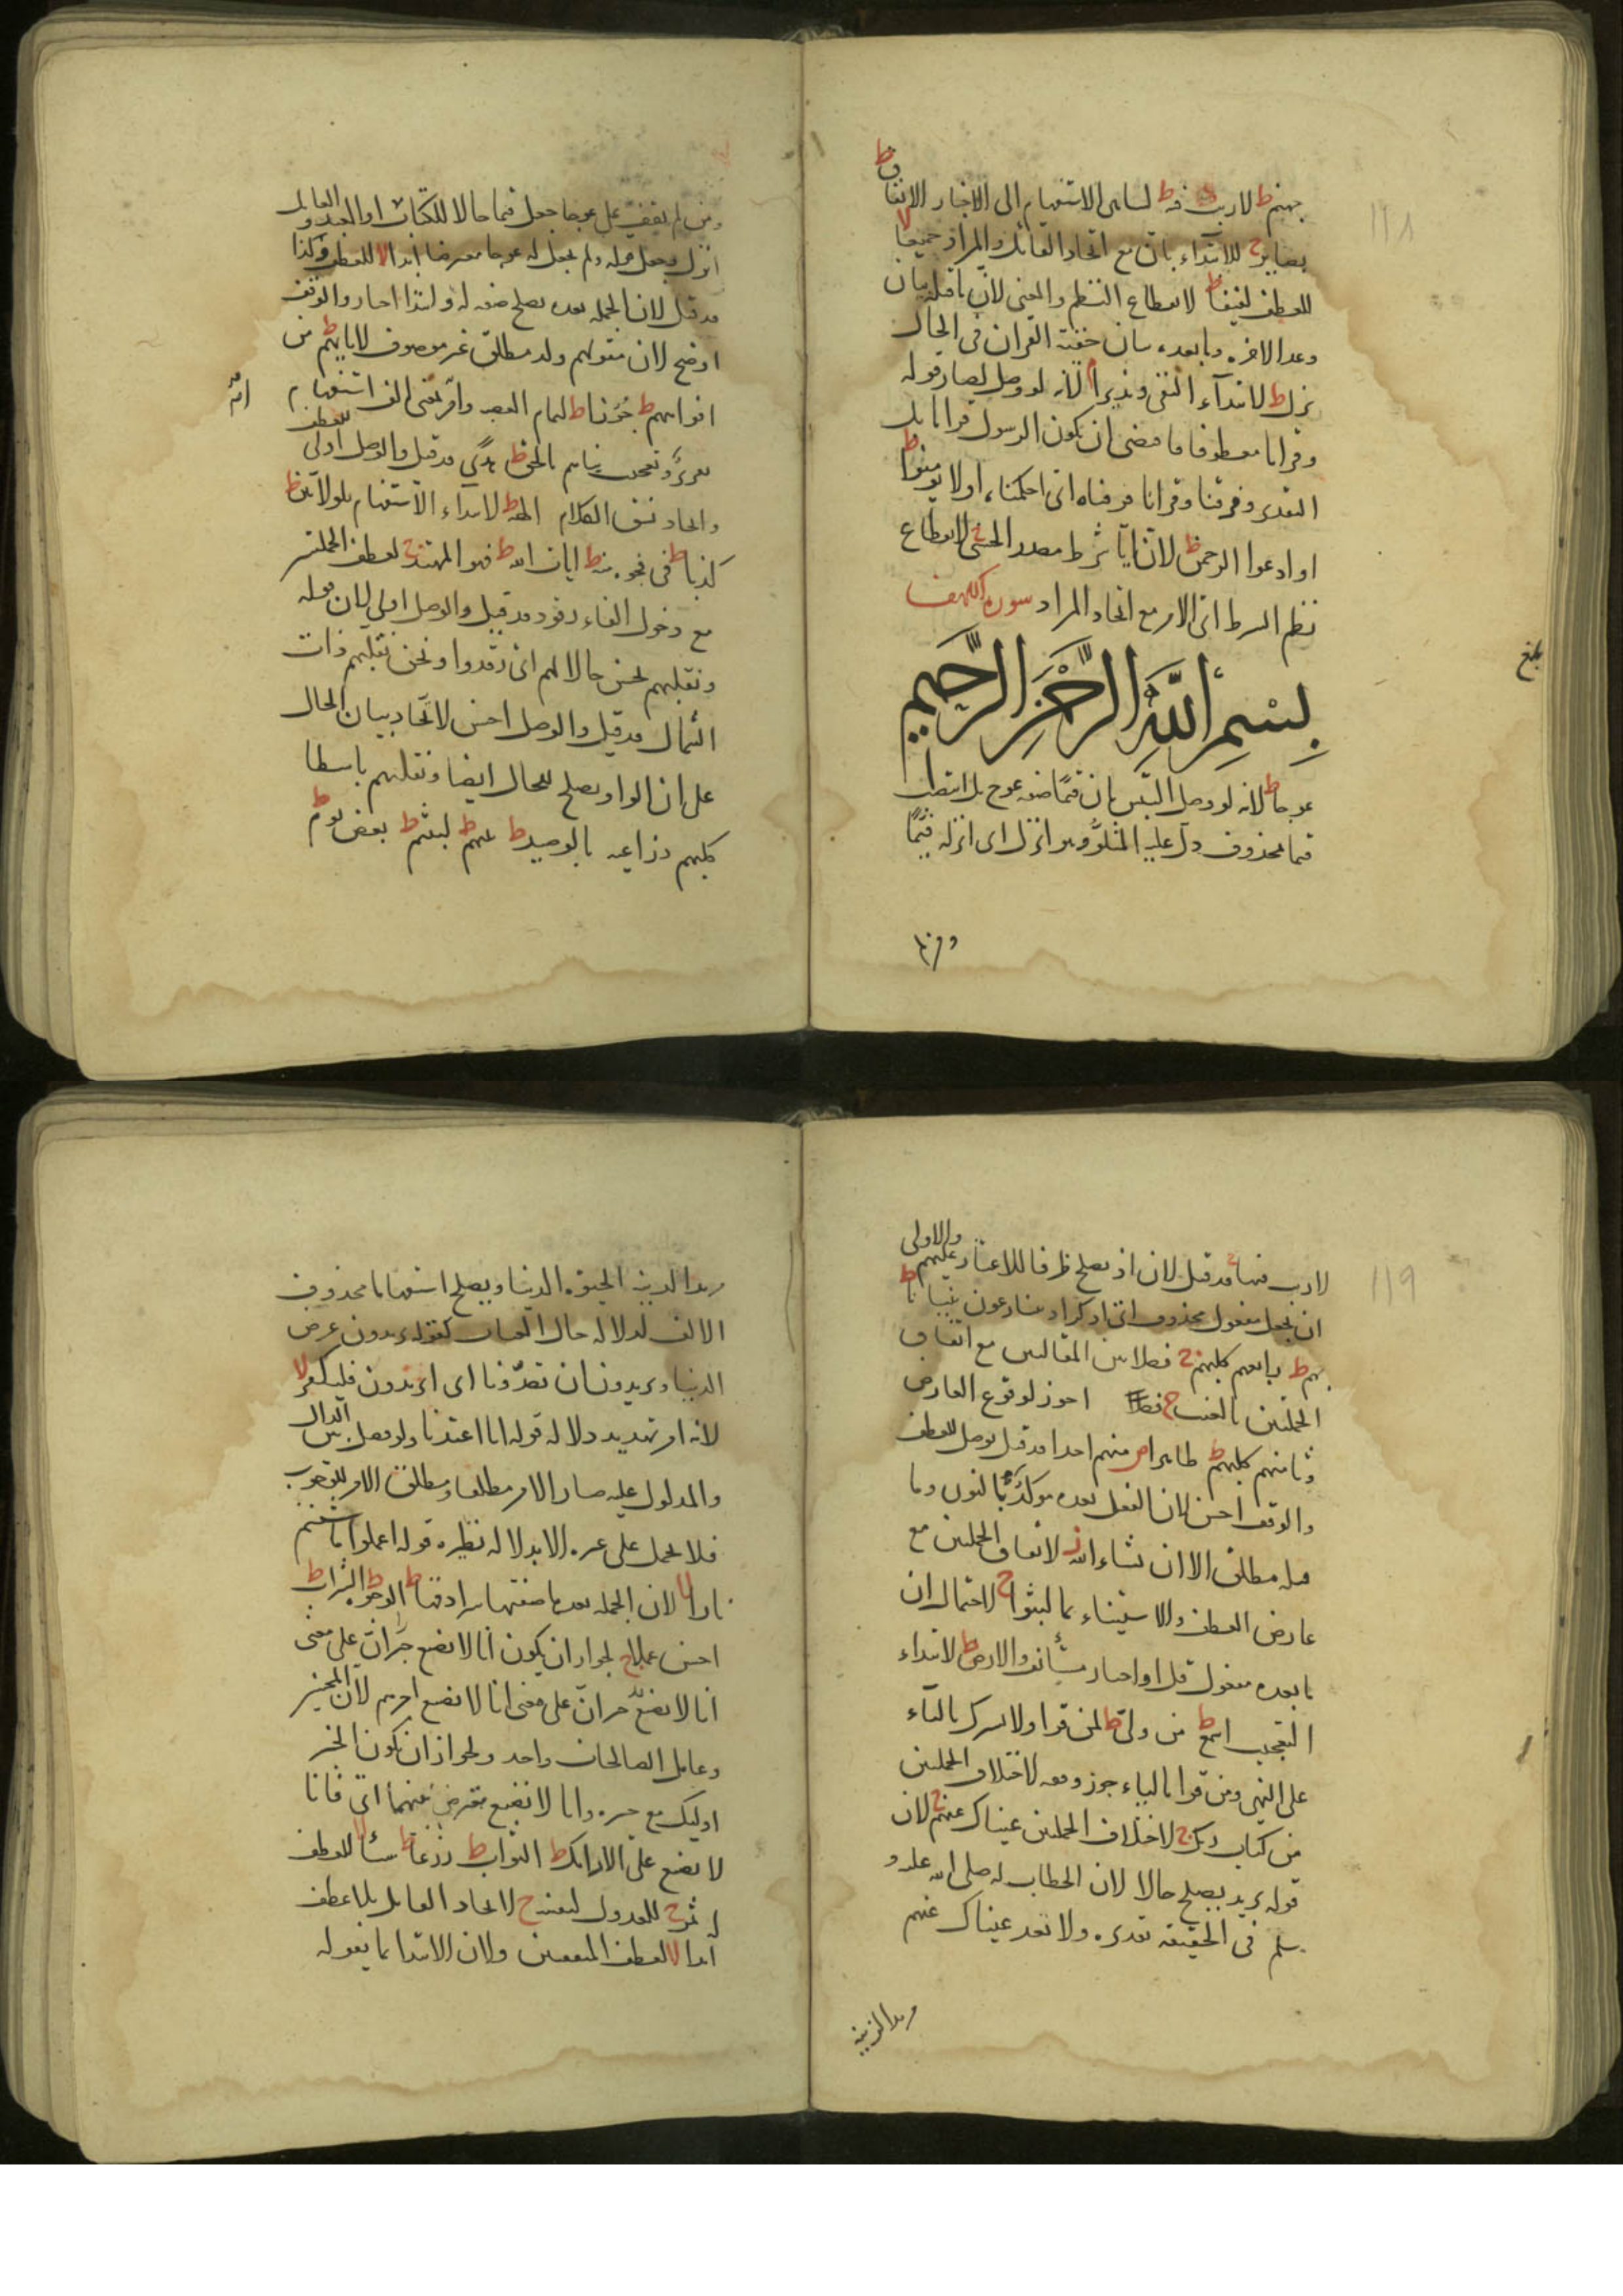 ١١٨
جهنم ط لا ريب فيه ط لتناهى الاستفهام الى الاخبار الانفاق ط
بصائر ج للابتداء بان مع اتحاد القائل والمراد جميعا لا
للعطف لفيفا ط لانقطاع النظم والمعنى لان ما قبله بيان
وعد الاخرة وما بعده بيان حقية القران فى الحال
نزل ط لابتداء النفى ونذيرا م لانه لو وصل لصار قوله
وقرانا معطوفا فاقتضى ان يكون الرسول قرانا بل
التقدير وفرقنا وقرانا فرقناه اى احكمناه اولا تومنوا ط
او ادعوا الرحمن ط لان ايا شرط مصدر الحسنى ج لانقطاع
نظم الشرط الى الامر مع اتحاد المراد سورة الكهف
بسم الله الرحمن الرحيم
عوجا ط لانه لو وصل التبس بان قيما صفة عوج بل انتصاب
قيما بمحذوف دل عليه المتلو وهو انزل اى انزله قيما
بلغ
ومن لم
ومن لم يقف على عوجا جعل قيما حالا للكتاب او العبد والعامل
انزل وجعل قوله ولم يجعل له عوجا معترضا ابدا لا للعطف وكذا
قد قيل لان الجملة بعده يصلح صفة له وابتداء اخبار والوقف
اوضح لان مقولهم ولد مطلق غير موصوف لابائهم ط من
افواههم ط جرزا ط لتمام القصة وام بمعنى الف استفهام
تقرير وتعجيب نباهم بالحق ط هدى قد قيل والوصل اولى للعطف
واتحاد نسق الكلام الهة ط لابتداء الاستفهام بلولا بين ط
كذبا ط فى فجوة منه ط ايات الله ط فهو المهتد ج لعطف الجملتين
مع دخول الفاء رقود قد قيل والوصل اولى لان قوله
ونقلبهم يحسن حالا لهم اى رقدوا ونحن نقلبهم ذات
الشمال قد قيل والوصل احسن لاتحاد بيان الحال
على ان الواو يصلح للحال ايضا ونقلبهم باسطا
كلبهم ذراعيه بالوصيد ط عنهم ط لبثتم ط بعض يوم ط
١١٩
لا ريب فيها ج قد قيل لان اذ يصلح ظرفا للاعثار عليهم والاولى
ان يجعل مفعول محذوف اى اذكر اذ يتنازعون بنيانا ط
بهم ط رابعهم كلبهم ج فصلا بين المقالتين مع اتفاق
الجملتين بالغيب ج فصلا اجوز لوقوع العارض
وثامنهم كلبهم ط ظاهرا ص منهم احدا قد قيل يوصل للعطف
والوقف احسن لان الفعل بعده موكد بالنون وما
قبله مطلق الا ان يشاء الله ز لاتفاق الجملتين مع
عارض العطف والاستثناء بما لبثوا ج لاحتمال ان
ما بعده مفعول قل او اخبار مستأنف والارض ط لابتداء
التعجب اسمع ط من ولى ط لمن قرا ولا تشرك بالتاء
على النهى ومن قرا بالياء جوز وقفه لاختلاف الجملتين
من كتاب ربك ج لاختلاف الجملتين عيناك عنهم ج لان
قوله تريد يصلح حالا لان الخطاب له صلى الله عليه و
سلم فى الحقيقة تقديره ولا تعد عيناك عنهم
مريدا لزينة
مريدا لزينة الحيوة الدنيا ويصلح استفهاما محذوف
الالف لدلالة حال العتاب كقوله تريدون عرض
الدنيا وتريدون ان تصدونا اى اتريدون فليكفر لا
لانه امر تهديد دلاله قوله انا اعتدنا ولو فصل بين الدال
والمدلول عليه صار الامر مطلقا ومطلق الامر للوجوب
فلا يحمل على غيره الا بدلالة نظيره قوله اعملوا ما شئتم
نارا لا لان الجملة بعدها صفتها سرادقها ط الوجوه ط الشراب ط
احسن عملا ج لجواز ان يكون انا لا نضيع خبر ان على معنى
انا لا نضيع خبر ان على معنى انا لا نضيع اجرهم لان المحسن
وعامل الصالحات واحد ولجواز ان يكون الخبر
اوليك مع خبره وانا لا نضيع معترض بينهما اى فانا
لا نضيع على الارائك ط الثواب ط زرعا ط شيئا لا للعطف
له ثمر ج للعدول لنفسه ج لاتحاد العامل بلا عطف
ابدا لا لعطف المتفقين ولان الابتداء بما يقوله